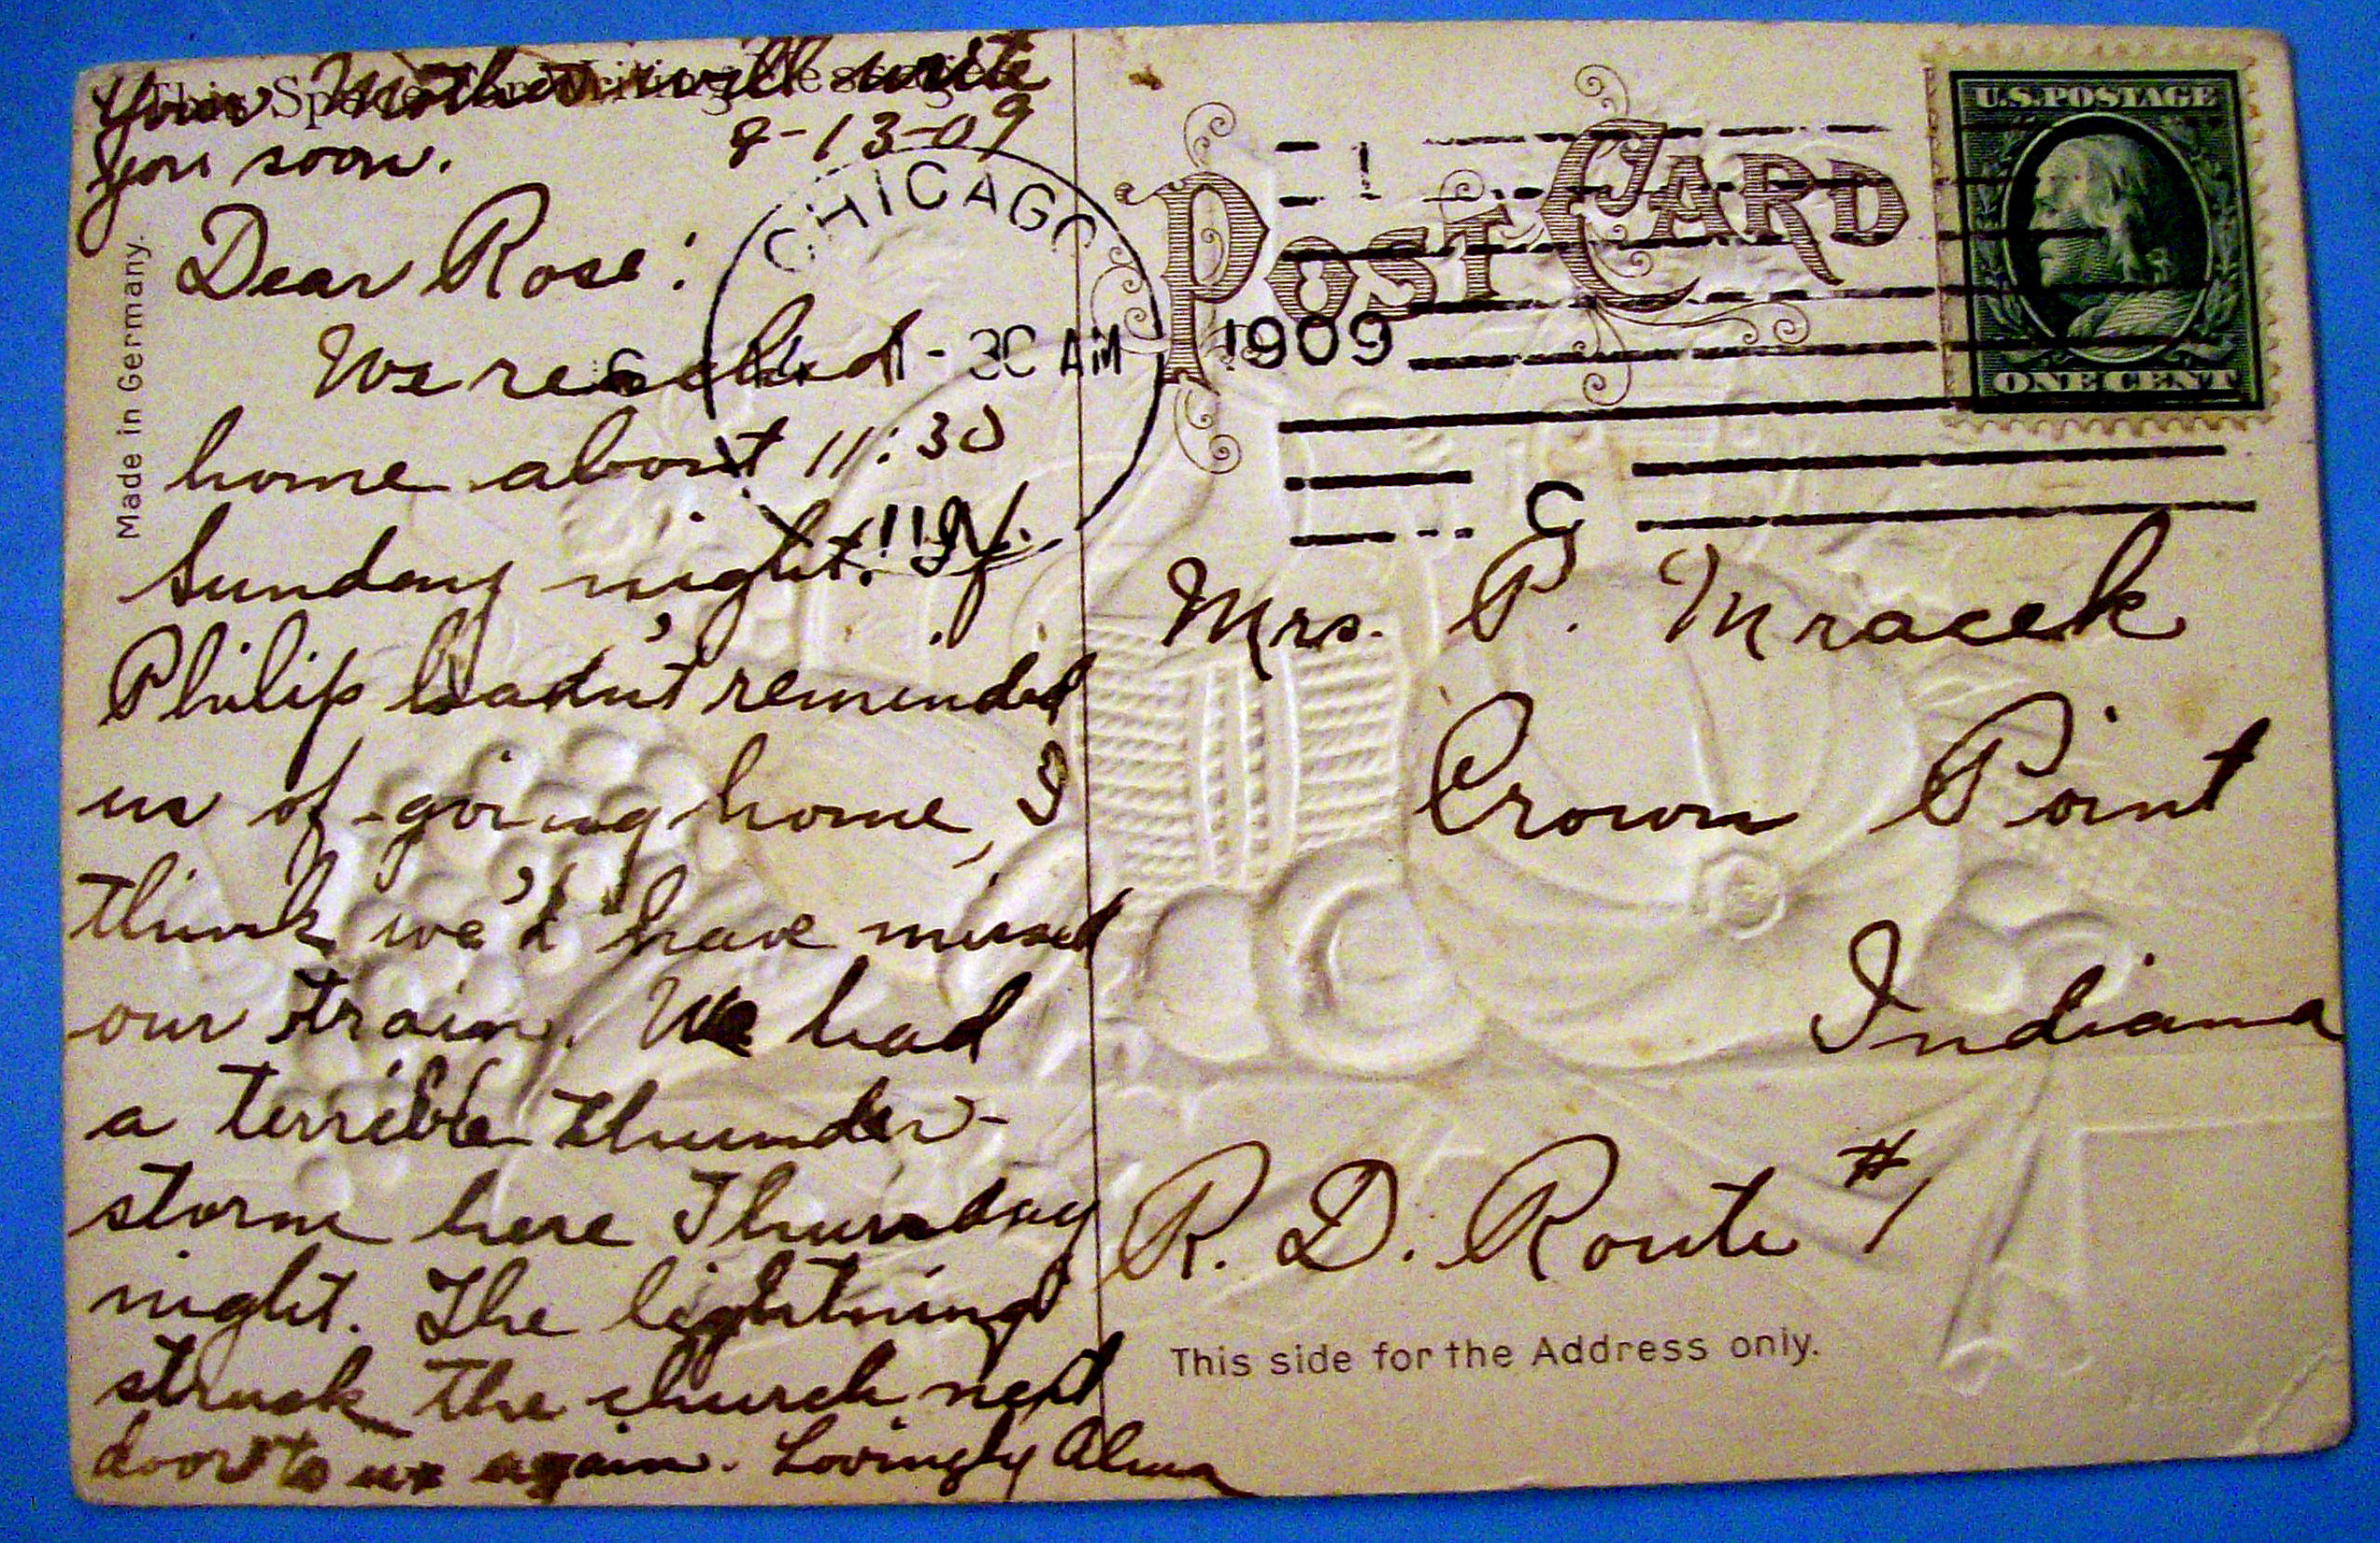 Your Mother will write
This Space
you soon.
8-13-09
Made in Germany.
Dear Rose:
We reached
home about 11:30
Sunday night. If
Philip hadn't reminded
us of going home, I
think we'd have missed
our train. We had
a terrible thunder-
storm here Thursday
night. The lightning
struck the church next
door to us again. Lovingly Alma
CHICAGO
30 AM
1909
ILL.
POST CARD
C
U.S. POSTAGE
ONE CENT
Mrs. P. Mracek
Crown Point
Indiana
R. D. Route #1
This side for the Address only.